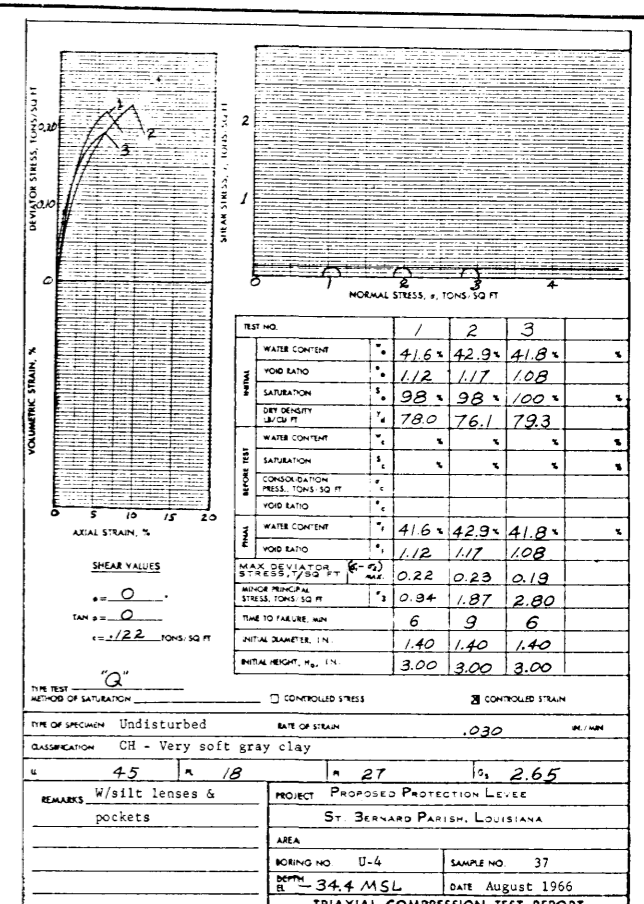 DEVIATOR STRESS, TONS/SQ FT
0.20
0.10
0
1
2
3
VOLUMETRIC STRAIN, %
0 5 10 15 20
AXIAL STRAIN, %
SHEAR STRESS, τ, TONS/SQ FT
2
1
0 1 2 3 4
NORMAL STRESS, σ, TONS/SQ FT
SHEAR VALUES
φ = 0 °
TAN φ = 0
c = .122 TONS/SQ FT
TEST NO. 1 2 3
INITIAL
WATER CONTENT wo 41.6 % 42.9 % 41.8 % %
VOID RATIO eo 1.12 1.17 1.08
SATURATION So 98 % 98 % 100 % %
DRY DENSITY LB/CU FT γd 78.0 76.1 79.3
BEFORE TEST
WATER CONTENT wc % % % %
SATURATION Sc % % % %
CONSOLIDATION PRESS., TONS/SQ FT σc
VOID RATIO ec
FINAL
WATER CONTENT wf 41.6 % 42.9 % 41.8 % %
VOID RATIO ef 1.12 1.17 1.08
MAX DEVIATOR STRESS, T/SQ FT MAX. 0.22 0.23 0.19
MINOR PRINCIPAL STRESS, TONS/SQ FT σ3 0.94 1.87 2.80
TIME TO FAILURE, MIN 6 9 6
INITIAL DIAMETER, IN. 1.40 1.40 1.40
INITIAL HEIGHT, Ho, IN. 3.00 3.00 3.00
TYPE TEST "Q"
METHOD OF SATURATION
CONTROLLED STRESS
CONTROLLED STRAIN
TYPE OF SPECIMEN Undisturbed RATE OF STRAIN .030 IN./MIN
CLASSIFICATION CH - Very soft gray clay
LL 45 PL 18 PI 27 Gs 2.65
REMARKS W/silt lenses &
pockets
PROJECT PROPOSED PROTECTION LEVEE
ST. BERNARD PARISH, LOUISIANA
AREA
BORING NO. U-4 SAMPLE NO. 37
DEPTH EL -34.4 MSL DATE August 1966
TRIAXIAL COMPRESSION TEST REPORT